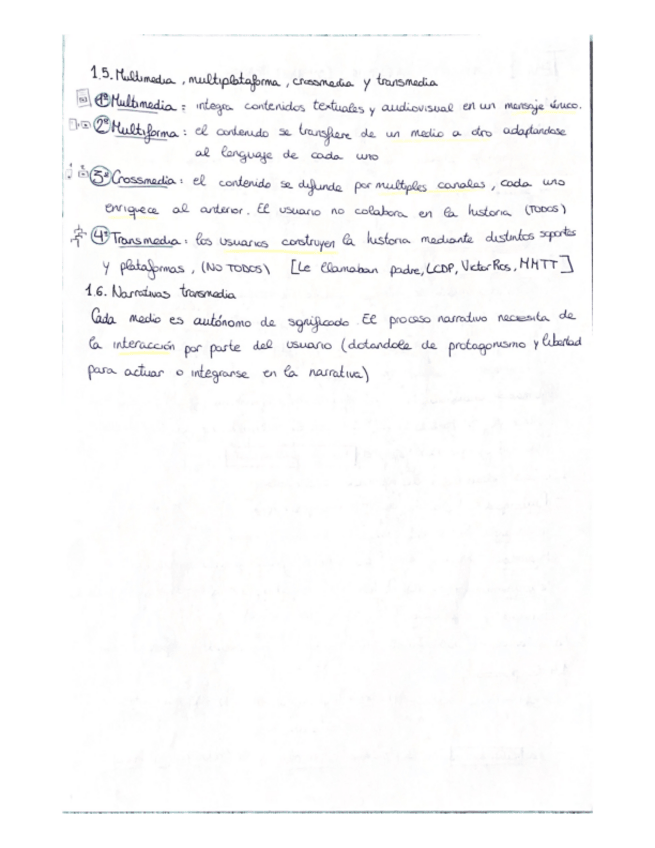 1.5. Multimedia, multiplataforma, crossmedia y transmedia
1º Multimedia: integra contenidos textuales y audiovisual en un mensaje único.
2º Multiforma: el contenido se transfiere de un medio a otro adaptándose
al lenguaje de cada uno
3º Crossmedia: el contenido se difunde por multiples canales, cada uno
enriquece al anterior. El usuario no colabora en la historia (TODOS)
4º Transmedia: los usuarios construyen la historia mediante distintos soportes
y plataformas, (NO TODOS) [Le llamaban padre, LCDP, Victor Ros, MMTT]
1.6. Narrativas transmedia
Cada medio es autónomo de significado. El proceso narrativo necesita de
la interacción por parte del usuario (dotandole de protagonismo y libertad
para actuar o integrarse en la narrativa)